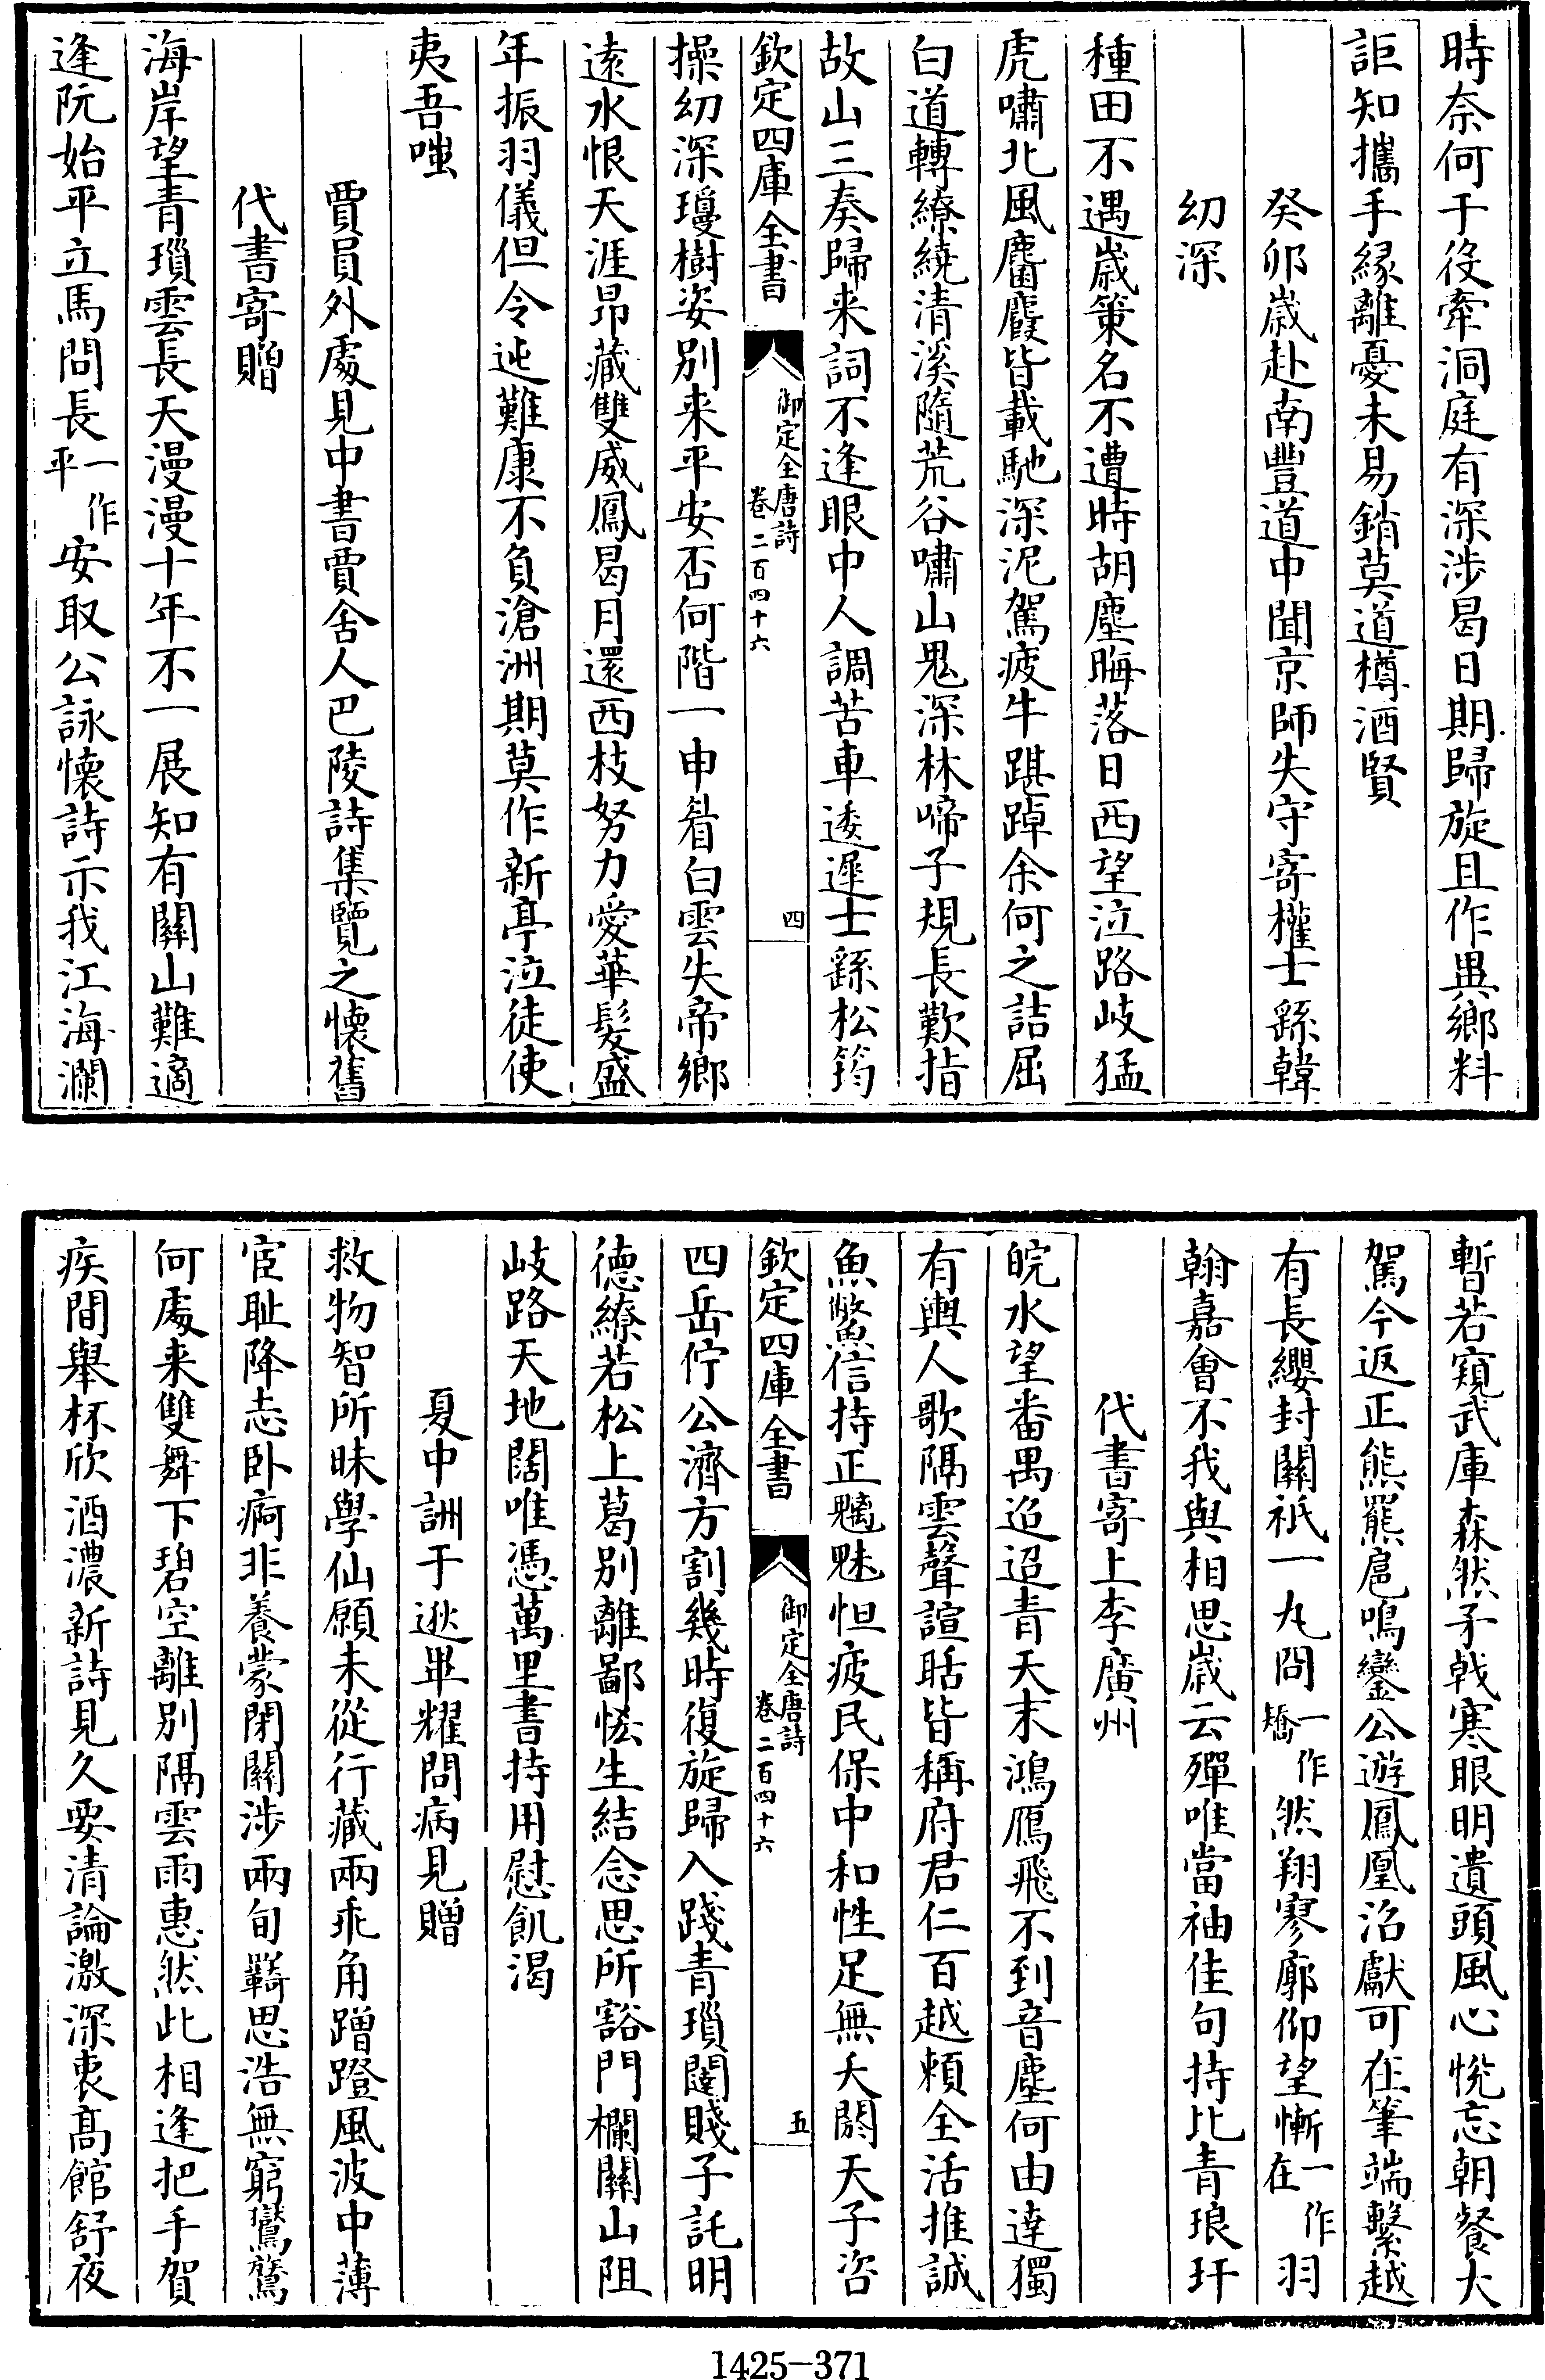 時奈何于役牽洞庭有深涉曷日期歸旋且作異鄉料
詎知攜手縁離憂未易銷莫道樽酒賢
癸卯嵗赴南豐道中聞京師失守寄權士繇韓
幼深
種田不遇嵗策名不遭時胡塵晦落日西望泣路岐猛
虎嘯北風麏麚皆載馳深泥駕疲牛踸踔余何之詰屈
白道轉繚繞清溪隨荒谷嘯山鬼深林啼子規長歎指
故山三奏歸来詞不逢眼中人調苦車逶遲士繇松筠
欽定四庫全書
御定全唐詩
卷二百四十六
四
操幼深瓊樹姿别来平安否何階一申眉白雲失帝鄉
逺水恨天涯昂藏雙威鳳曷月還西枝努力愛華髪盛
年振羽儀但令迍難康不負滄洲期莫作新亭泣徒使
夷吾嗤
賈員外處見中書賈舍人巴陵詩集覽之懐舊
代書寄贈
海岸望青瑣雲長天漫漫十年不一展知有關山難適
逢阮始平立馬問長一作平安取公詠懐詩示我江海瀾
暫若窺武庫森然矛戟寒眼明遺頭風心悅忘朝餐大
駕今返正熊羆扈鳴鑾公遊鳳凰沼獻可在筆端繫越
有長纓封關祇一丸冏一作矯然翔寥廓仰望慚一作在羽
翰嘉會不我與相思嵗云殫唯當袖佳句持比青琅玕
代書寄上李廣州
皖水望番禺迢迢青天末鴻鴈飛不到音塵何由達獨
有輿人歌隔雲聲諠聒皆稱府君仁百越頼全活推誠
魚鱉信持正魑魅怛疲民保中和性足無夭閼天子咨
欽定四庫全書
御定全唐詩
卷二百四十六
五
四岳佇公濟方割幾時復旋歸入踐青瑣闥賤子託明
德繚若松上葛别離鄙恡生結念思所豁門欄關山阻
岐路天地闊唯憑萬里書持用慰飢渴
夏中詶于逖畢耀問病見贈
救物智所昧學仙願未從行藏兩乖角蹭蹬風波中薄
宦耻降志卧痾非養蒙閉關渉兩旬羇思浩無窮鸞鷟
何處来雙舞下碧空離别隔雲雨惠然此相逢把手賀
疾間舉杯欣酒濃新詩見久要清論激深衷髙館舒夜
1425—371